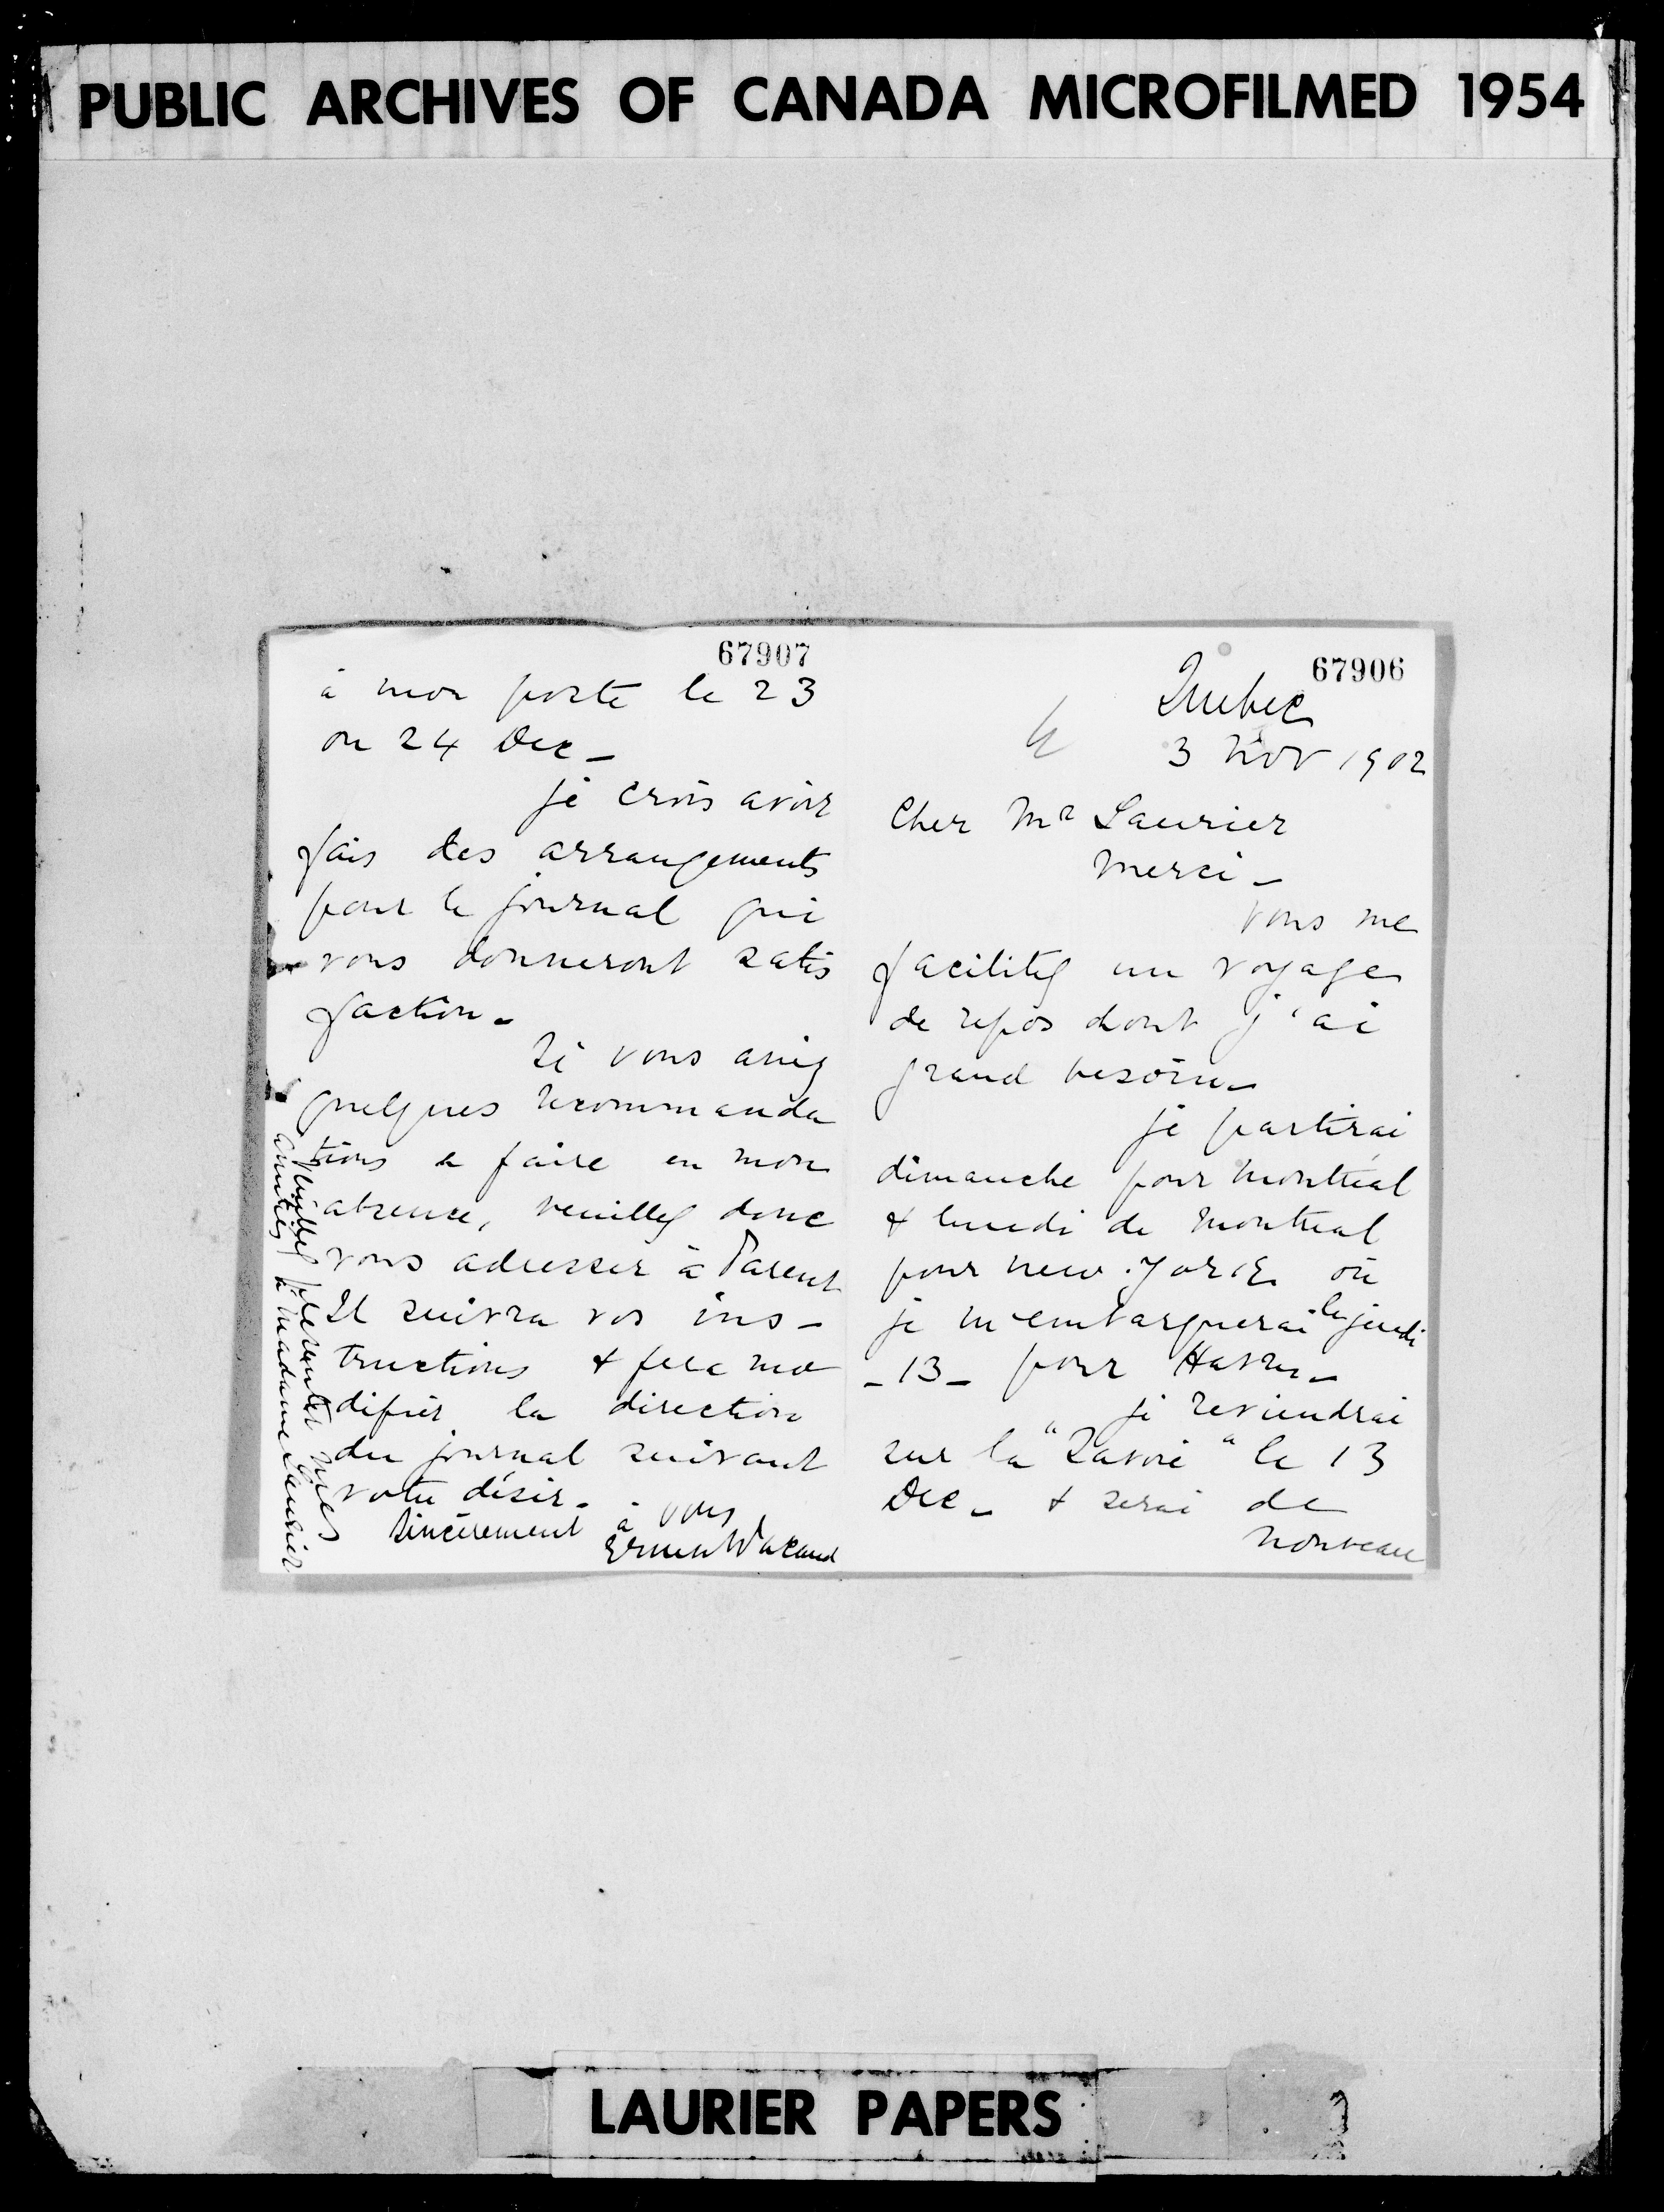 PUBLIC ARCHIVES OF CANADA MICROFILMED 1954
67906
Quebec
3 Nov 1902
Cher Mr Laurier
Merci -
Vous me
facilitez un voyage
de repos dont j'ai
grand besoin -
je partirai
dimanche pour Montréal
& lundi de Montreal
pour New-York où
je m'embarquerai le jeudi
- 13 - pour Havre -
je reviendrai
sur la "Savoie" le 13
Dec - & serai de
nouveau
67907
à mon poste le 23
ou 24 Dec -
je crois avoir
fais des arrangements
pour le journal qui
vous donneront satis
faction -
Si vous aviez
quelques recommanda
tions a faire en mon
absence, veuillez donc
vous adresser à Parent
Il suivra vos ins-
tructions & fera mo
difier la direction
du journal suivant
votre désir -
Sincèrement à vous
Ernest Pacaud
Veuillez présenter mes
amitiés à Madame Laurier
LAURIER PAPERS